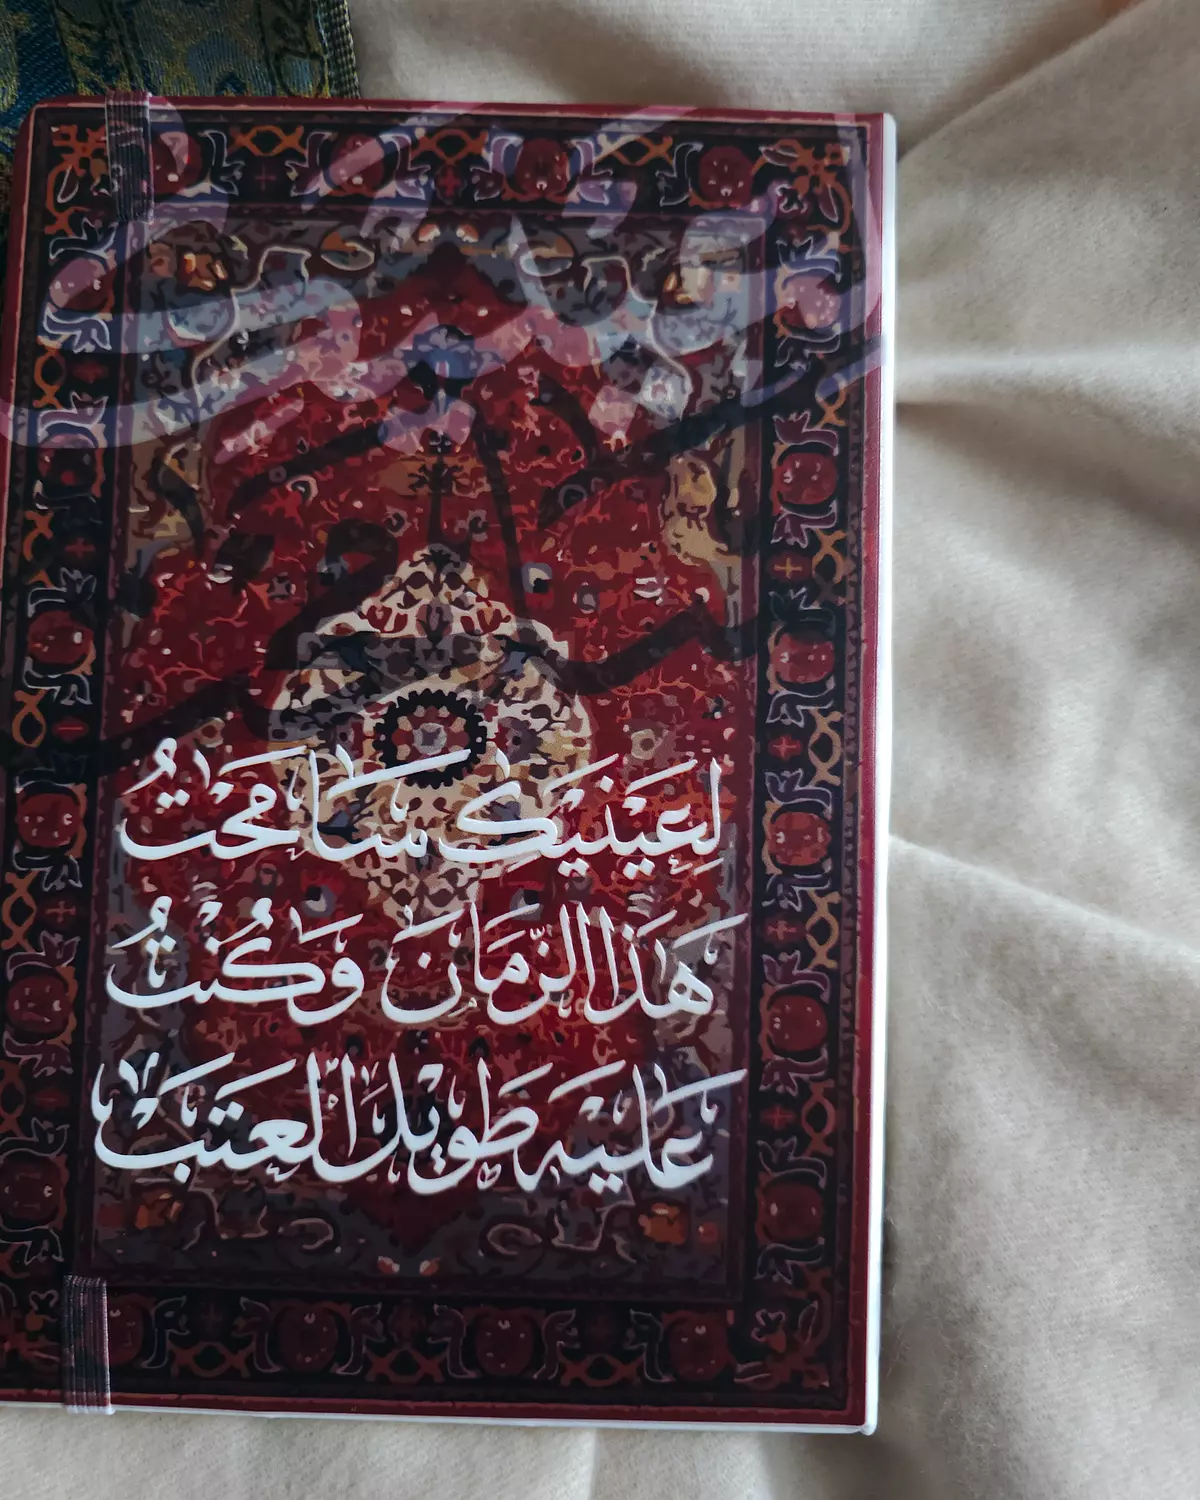 لِعَيْنَيْكِ سَامَحْتُ
هَذَا الزَّمَانَ وَكُنْتُ
عَلَيْهِ طَوِيلَ الْعَتَبْ